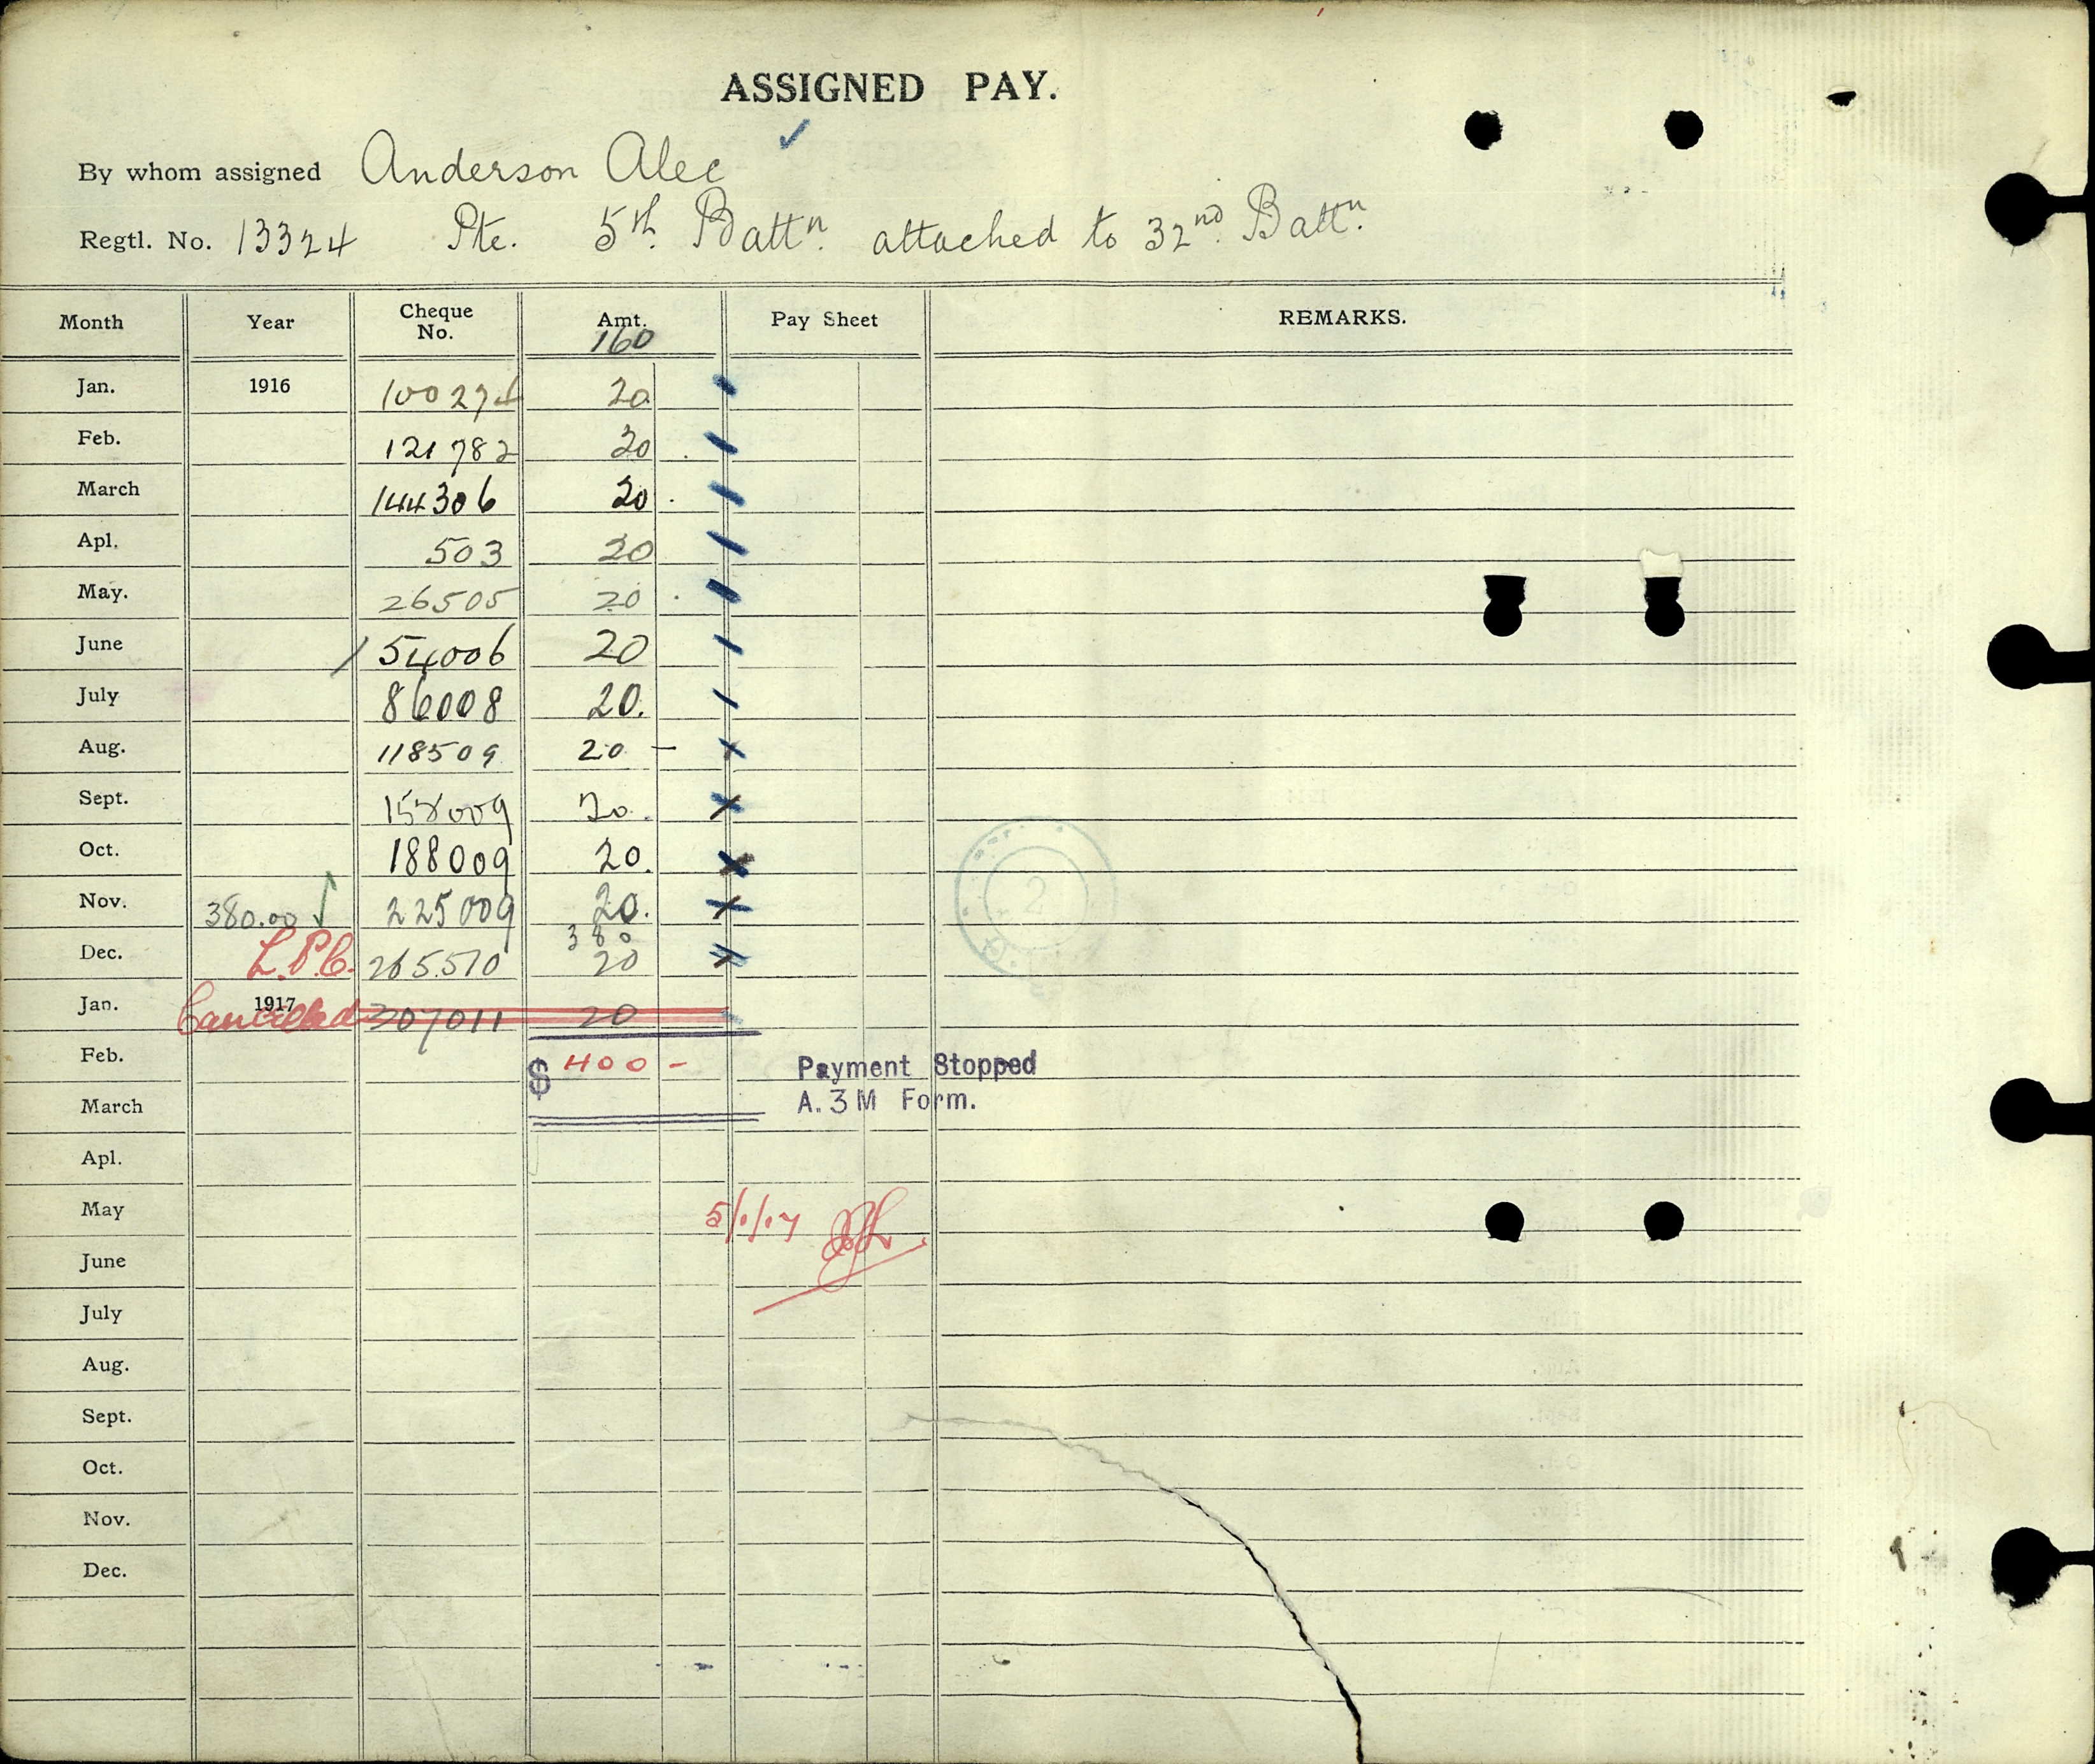 ASSIGNED PAY.
By whom assigned Anderson Alec
Regtl. No. 13324 Pte. 5th Battn. attached to 32nd Battn.
Month Year Cheque No. Amt. Pay Sheet REMARKS.
160
Jan. 1916 100274 20
Feb. 121782 20
March 144306 20
Apl. 503 20
May. 26505 20
June 54006 20
July 86008 20.
Aug. 118509 20 -
Sept. 158009 20.
Oct. 188009 20.
Nov. 380.00 225009 20.
380
Dec. L.P.C. 265510 20
Jan. 1917 Cancelled 307011 20
Feb. $ 400 - Payment Stopped
March A. 3 M Form.
Apl.
May 5/1/17
June
July
Aug.
Sept.
Oct.
Nov.
Dec.
2